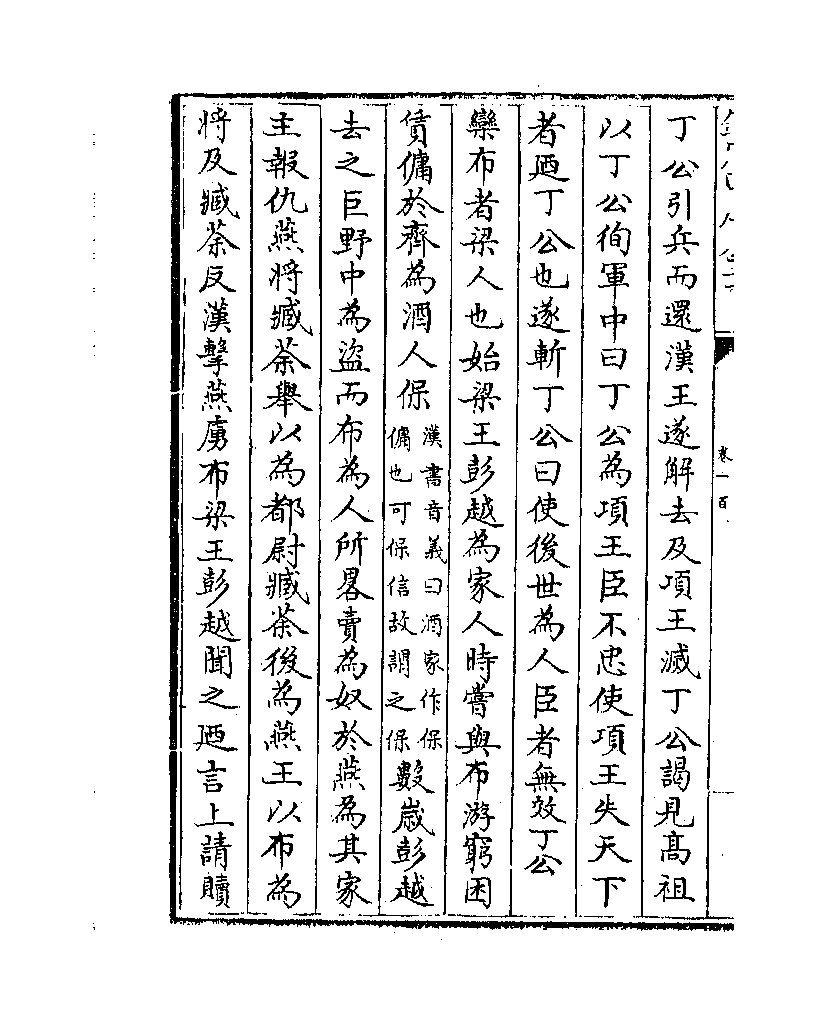 卷一百
丁公引兵而還漢王遂解去及項王滅丁公謁見髙祖
以丁公徇軍中曰丁公為項王臣不忠使項王失天下
者廼丁公也遂斬丁公曰使後世為人臣者無效丁公
欒布者梁人也始梁王彭越為家人時嘗與布游窮困
賃傭於齊為酒人保漢書音義曰酒家作保傭也可保信故謂之保數嵗彭越
去之巨野中為盜而布為人所畧賣為奴於燕為其家
主報仇燕將臧荼舉以為都尉臧荼後為燕王以布為
將及臧荼反漢擊燕虜布梁王彭越聞之廼言上請贖